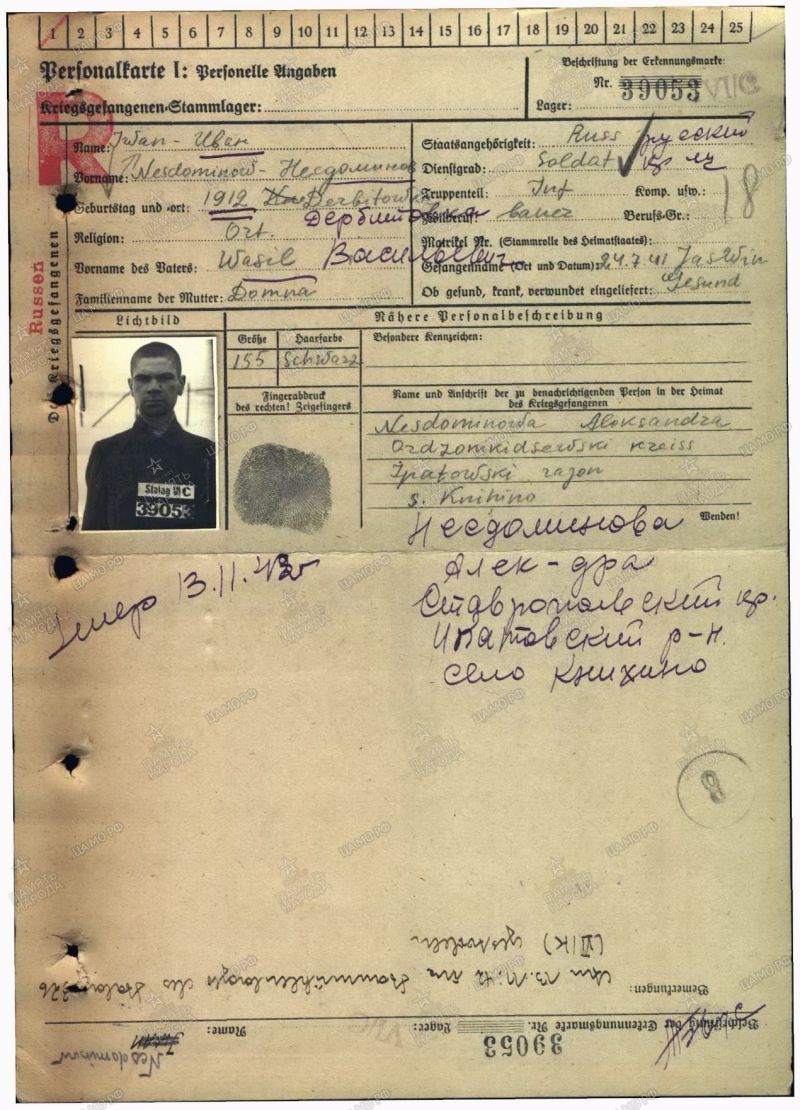 1 2 3 4 5 6 7 8 9 10 11 12 13 14 15 16 17 18 19 20 21 22 23 24 25
Personalkarte I: Personelle Angaben
Kriegsgefangenen-Stammlager:
Beschriftung der Erkennungsmarke:
Nr. 39053 VI/C
Lager:
R
Russen
Des Kriegsgefangenen
Name: Iwan - Иван
Vorname: Nesdominow - Несдоминов
Geburtstag und -ort: 1912 Derbitowka
Дербитовка
Religion: Ort.
Vorname des Vaters: Wasil Василевич
Familienname der Mutter: Domna
Staatsangehörigkeit: Russ русский
Dienstgrad: Soldat
Truppenteil: Inf Komp. usw.: 18
Zivilberuf: bauer Berufs-Gr.:
Matrikel Nr. (Stammrolle des Heimatstaates):
Gefangennahme (Ort und Datum): 24.7.41 Jaswin
Ob gesund, krank, verwundet eingeliefert: Gesund
Lichtbild
Stalag VI C
39053
Nähere Personalbeschreibung
Größe
Haarfarbe
155
Schwarz
Besondere Kennzeichen:
Fingerabdruck
des rechten! Zeigefingers
Name und Anschrift der zu benachrichtigenden Person in der Heimat
des Kriegsgefangenen
Nesdominowa Aleksandra
Ordzonikidsewski kreiss
Ipatowski rajon
s. Knihino
Wenden!
Несдоминова
Алек-дра
Ставропольский кр.
Ипатовский р-н.
село Книхино
Умер 13.11.42г
Beschriftung der Erkennungsmarke Nr. 39053 Lager: VI/C Name: Nesdominow
Bemerkungen: Am 13.11.42 im des Stalag 326
(VI K) gestorben
ПАМЯТЬ НАРОДА
ЦАМО.РФ